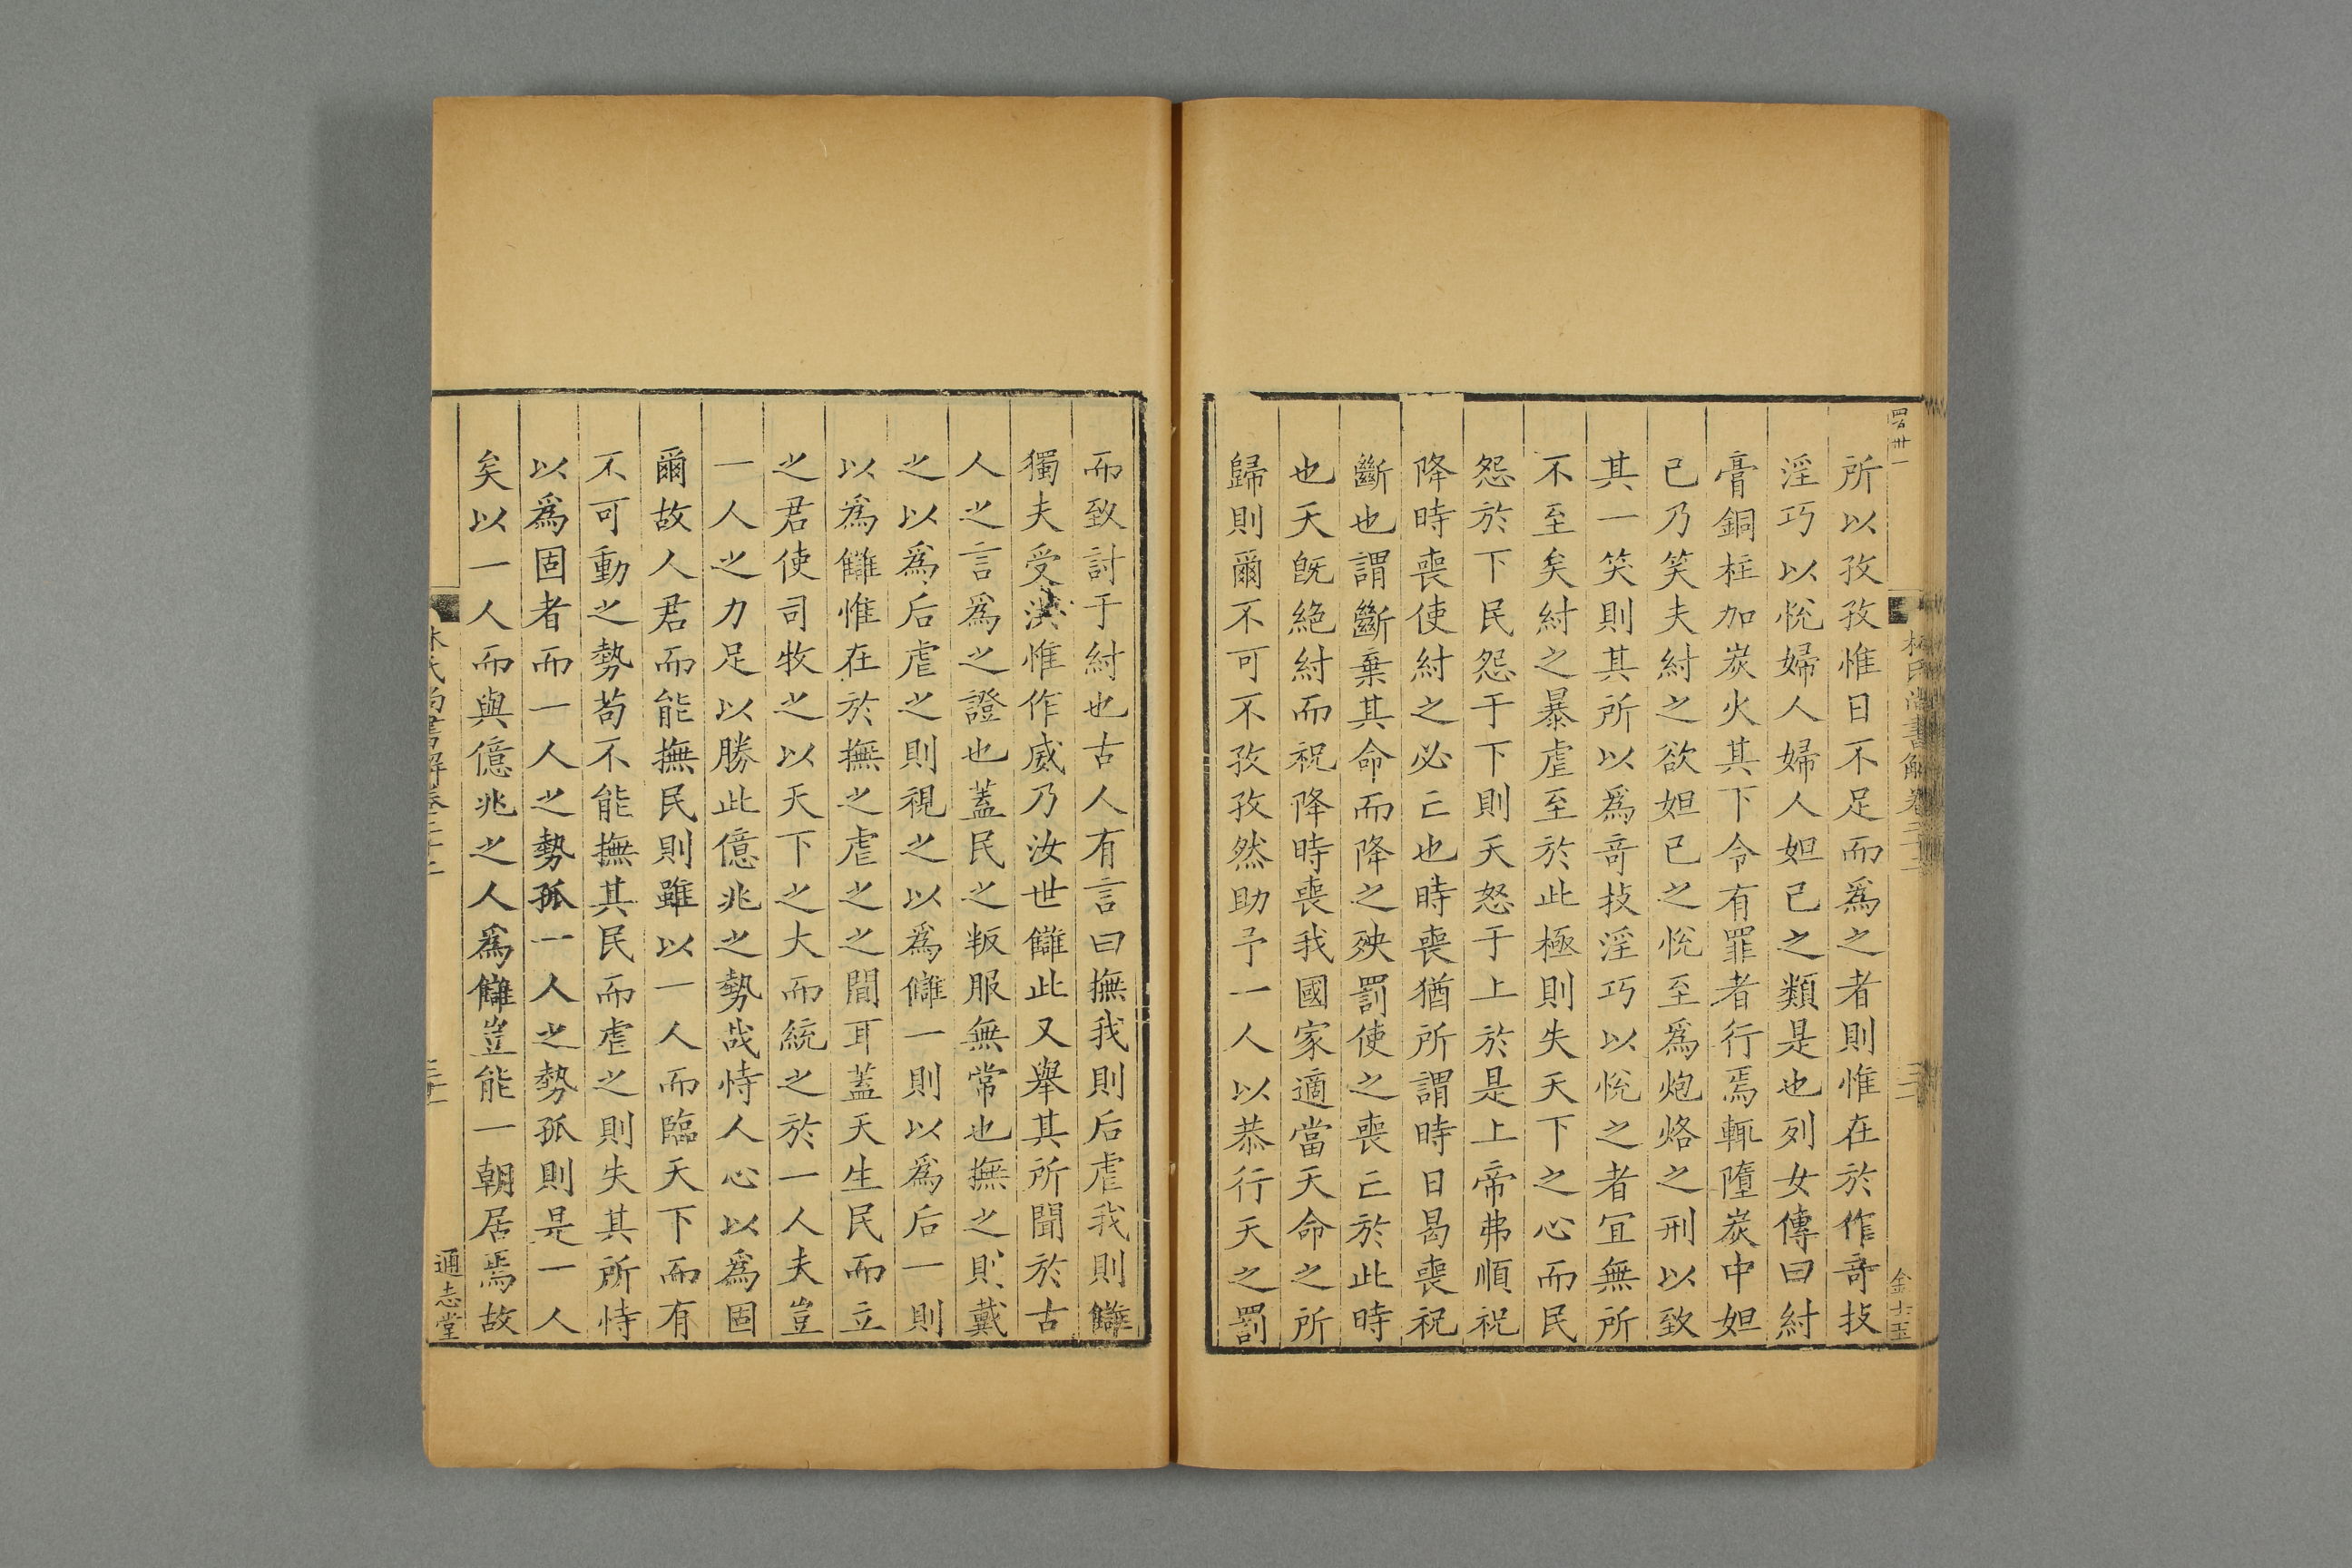 所以孜孜惟日不足而爲之者則惟在於作奇技
淫巧以悅婦人婦人妲己之類是也列女傳曰紂
膏銅柱加炭火其下令有罪者行焉輒墮炭中妲
己乃笑夫紂之欲妲己之悅至爲炮烙之刑以致
其一笑則其所以爲奇技淫巧以悅之者宜無所
不至矣紂之暴虐至於此極則失天下之心而民
怨於下民怨于下則天怒于上於是上帝弗順祝
降時喪使紂之必亡也時喪猶所謂時日曷喪祝
斷也謂斷棄其命而降之殃罰使之喪亡於此時
也天旣絕紂而祝降時喪我國家適當天命之所
歸則爾不可不孜孜然助予一人以恭行天之罰
而致討于紂也古人有言曰撫我則后虐我則讎
獨夫受洪惟作威乃汝世讎此又舉其所聞於古
人之言爲之證也蓋民之叛服無常也撫之則戴
之以爲后虐之則視之以爲讎一則以爲后一則
以爲讎惟在於撫之虐之之間耳蓋天生民而立
之君使司牧之以天下之大而統之於一人夫豈
一人之力足以勝此億兆之勢哉恃人心以爲固
爾故人君而能撫民則雖以一人而臨天下而有
不可動之勢苟不能撫其民而虐之則失其所恃
以爲固者而一人之勢孤一人之勢孤則是一人
矣以一人而與億兆之人爲讎豈能一朝居焉故
林氏尚書解卷二十二
通志堂